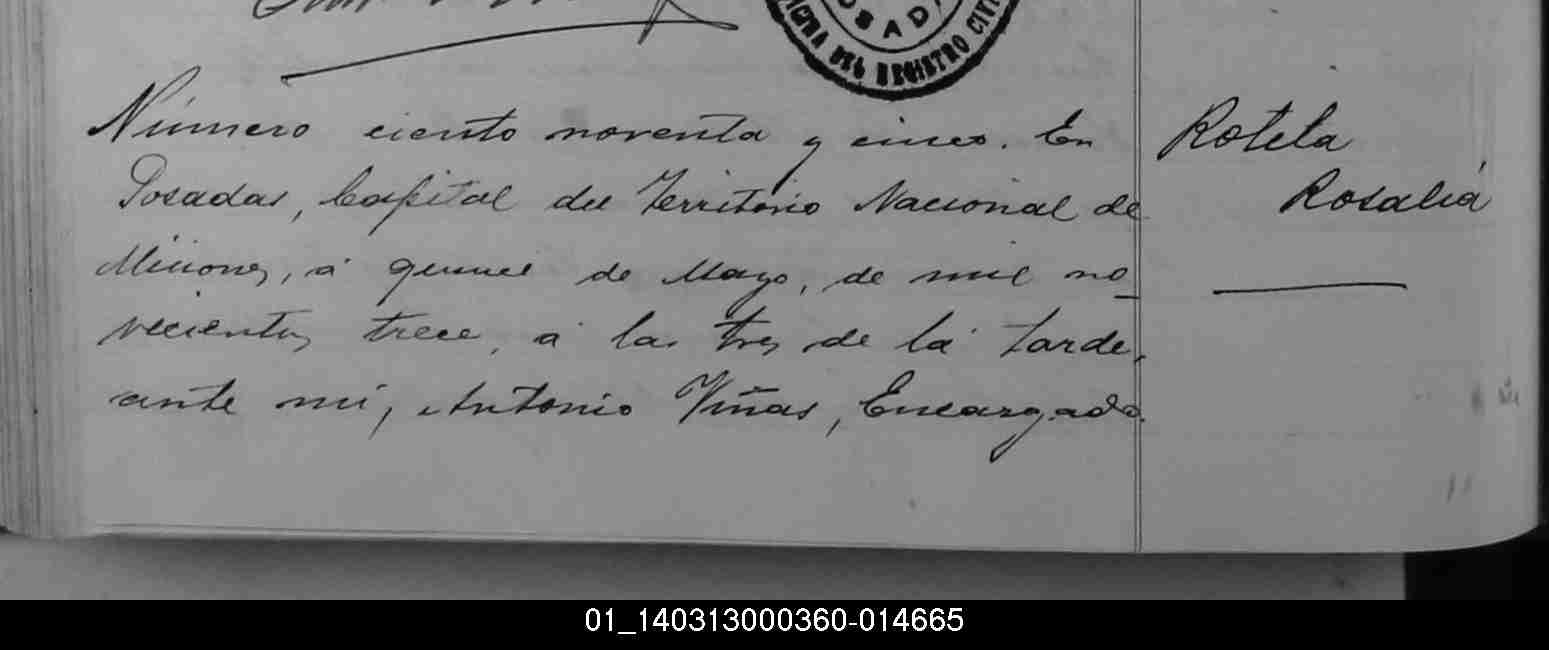 OSADA
CINA DEL REGISTRO CIVI
Número ciento noventa y cinco. En
Posadas, Capital del Territorio Nacional de
Misiones, á quince de Mayo, de mil no_
vecientos trece, á las tres de la tarde,
ante mí, Antonio Viñas, Encargado
Rotela
Rosalia
01_140313000360-014665